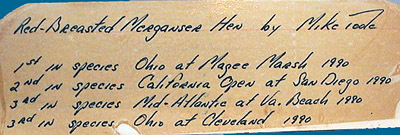 Red-Breasted Merganser Hen by Mike Tode
1st in species Ohio at Magee Marsh 1990
2nd in species California Open at San Diego 1990
3rd in species Mid-Atlantic at Va. Beach 1990
3rd in species Ohio at Cleveland 1990